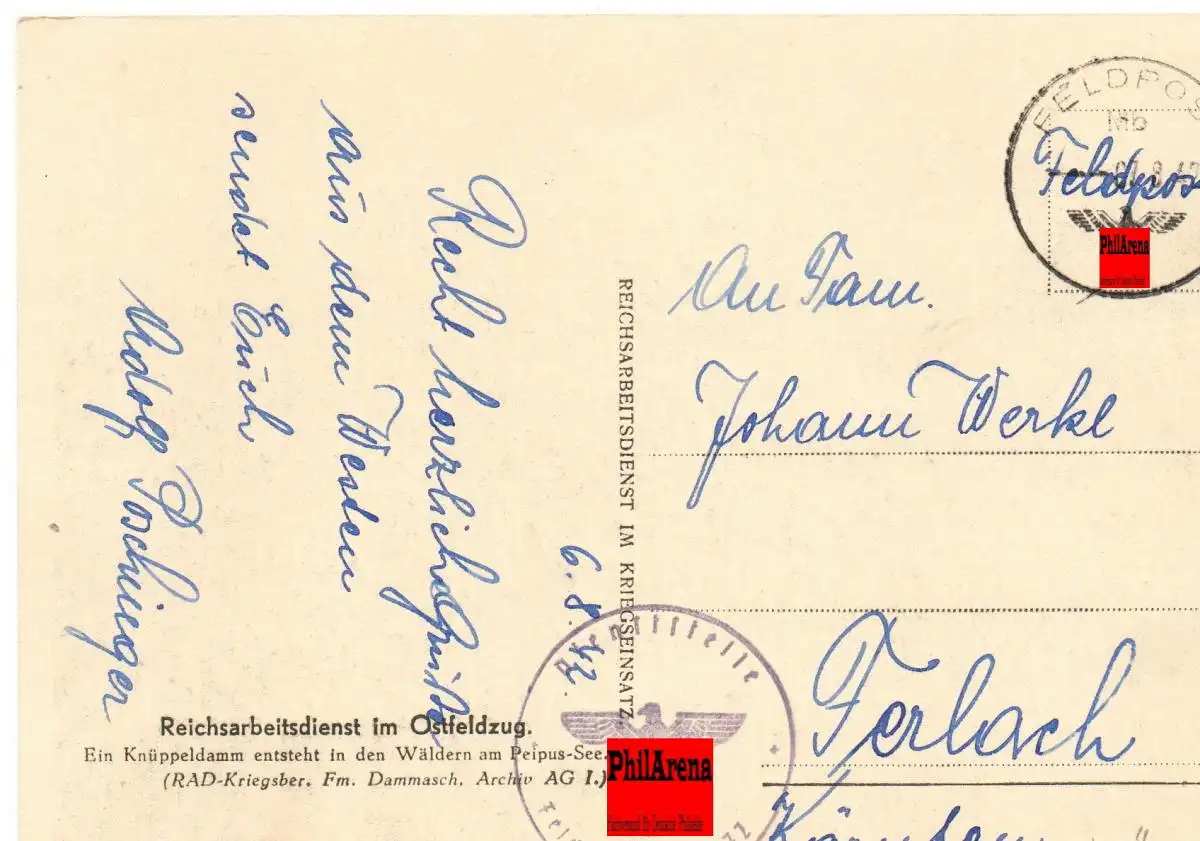 6. 8. 42.
Recht herzliche Grüße
aus dem Westen
sendet Euch
Adolf Poschinger
REICHSARBEITSDIENST IM KRIEGSEINSATZ.
FELDPOS
Mb
Feldpos
PhilArena
An Fam.
Johann Werkl
Ferlach
Kärnten
Dienststelle
PhilArena
Reichsarbeitsdienst im Ostfeldzug.
Ein Knüppeldamm entsteht in den Wäldern am Peipus-See.
(RAD-Kriegsber. Fm. Dammasch, Archiv AG I.)